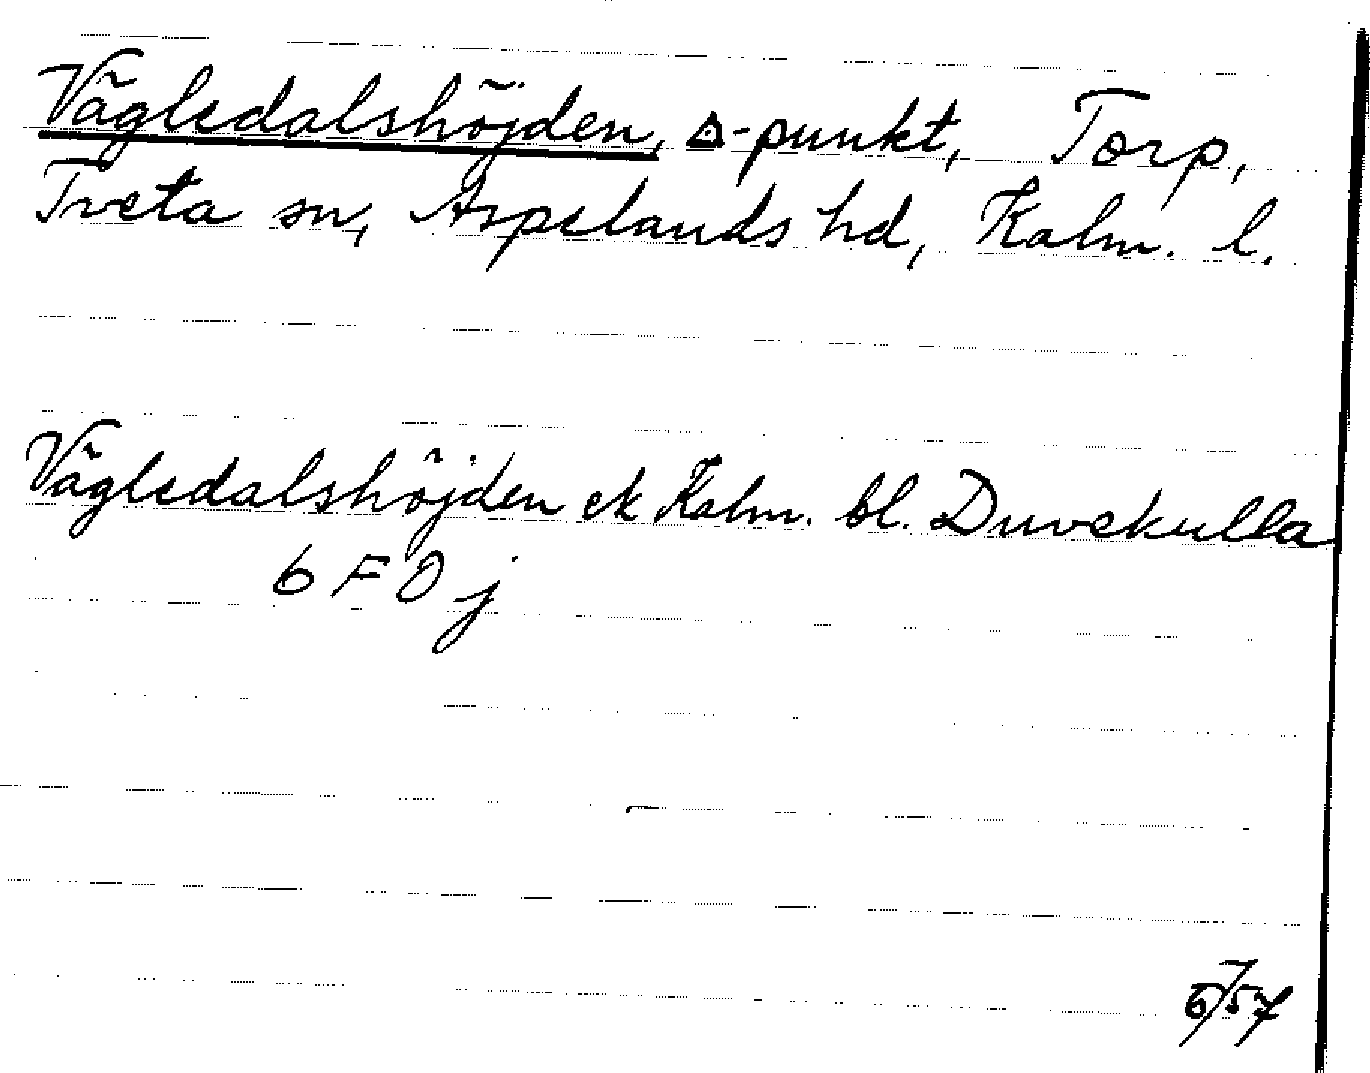 Vägledalshöjden, △-punkt, Torp,
Tveta sn, Aspelands hd, Kalm. l.
Vägledalshöjden ek Kalm. bl. Duvekulla
6 F 0 j